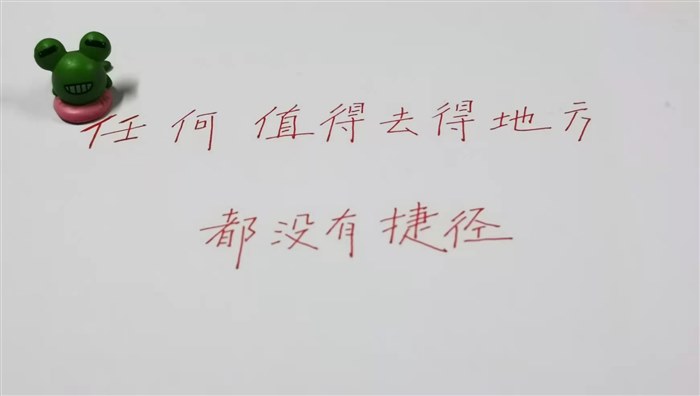 任何值得去得地方
都没有捷径